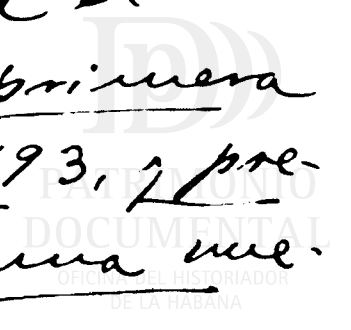 primera
93, y pre-
una nue-
PATRIMONIO
DOCUMENTAL
OFICINA DEL HISTORIADOR
DE LA HABANA